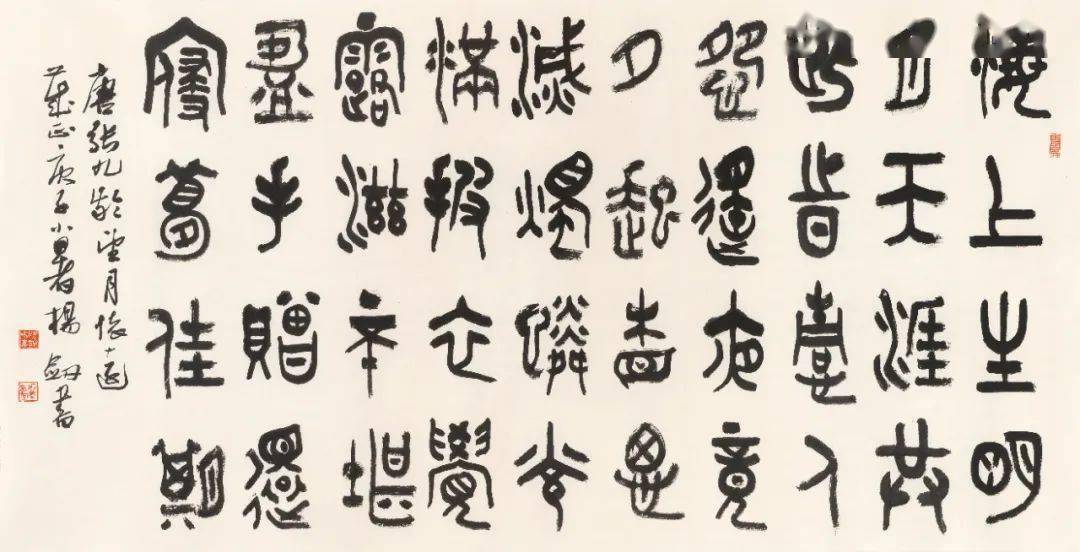 海上生明
月天涯共
此時情人
怨遙夜竟
夕起相思
滅燭憐光
滿披衣覺
露滋不堪
盈手贈還
寢夢佳期
唐張九齡望月懷遠
庚子小暑楊劍書